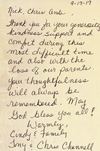 9-17-17
Nick, Chris and
Thank you for your generosity
kindness support and
comfort during this
most difficult time
and also with the
loss of our parents
Your thoughtfulness
will always be
remembered. May
God bless you all!
Warmly,
Cindy & Family
Tony & Chris